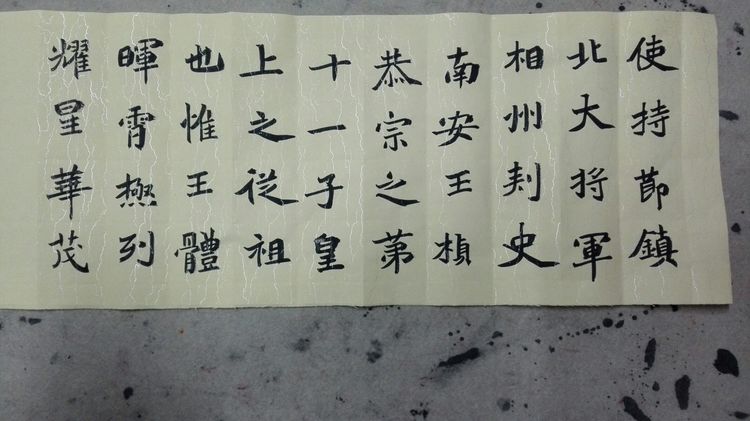 使持節鎮
北大將軍
相州刾史
南安王楨
恭宗之第
十一子皇
上之從祖
也惟王體
暉霄極列
耀星華茂